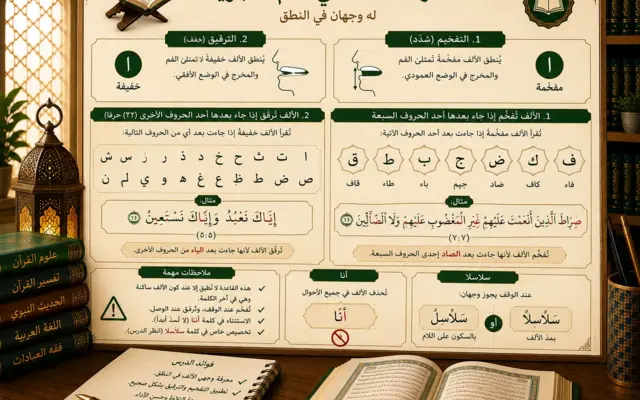 له وجهان في النطق
1. التفخيم (شدّد)
يُنطق الألف مفخّمةً تُمتلئ الفم
والمخرج في الوضع العمودي.
ا
مفخّمة
2. الترقيق (خفف)
يُنطق الألف خفيفةً لا تمتلئ الفم
والمخرج في الوضع الأفقي.
ا
خفيفة
1. الألف تُفخَّم إذا جاء بعدها أحد الحروف السبعة
تُقرأ الألف مفخّمةً إذا جاءت بعد أحد الحروف الآتية:
ف ك ض ج ب ط ق
فاء كاف ضاد جيم باء طاء قاف
مثال:
صِرَاطَ ٱلَّذِينَ أَنْعَمْتَ عَلَيْهِمْ غَيْرِ ٱلْمَغْضُوبِ عَلَيْهِمْ وَلَا ٱلضَّآلِّينَ
(٧:٧)
تُفخَّم الألف لأنها جاءت بعد الصاد إحدى الحروف السبعة.
2. الألف تُرقَّق إذا جاء بعدها أحد الحروف الأخرى (٢٢ حرفا)
تُقرأ الألف خفيفةً إذا جاءت بعد أي من الحروف التالية:
ا ت ث ح خ د ذ ر س ش
ص ض ط ظ ع غ ه و ي ل ن
مثال:
إِيَّاكَ نَعْبُدُ وَإِيَّاكَ نَسْتَعِينُ
(٥:٥)
تُرقَّق الألف لأنها جاءت بعد الياء من الحروف الأخرى.
سلاسلا
عند الوقف يجوز وجهان:
سَلَاسِلَا
بمد الألف
أو
سَلَاسِلْ
بالسكون على اللام
أنا
تُحذف الألف في جميع الأحوال
أَنَا
ملاحظات مهمة
هذه القاعدة لا تُطبق إلا عند كون الألف ساكنة
وهي في آخر الكلمة.
تُفخَّم عند الوقف، وتُرقَّق عند الوصل.
الاستثناء في كلمة أنا (لا تُمدّ أبداً).
تخصيص خاص في كلمة سلاسلا (انظر الدرس).
علوم القرآن
تفسير القرآن
الحديث النبوي
اللغة العربية
فقه العبادات
فوائد الدرس
معرفة وجهي الألف في النطق.
تطبيق التفخيم والترقيق بشكل صحيح